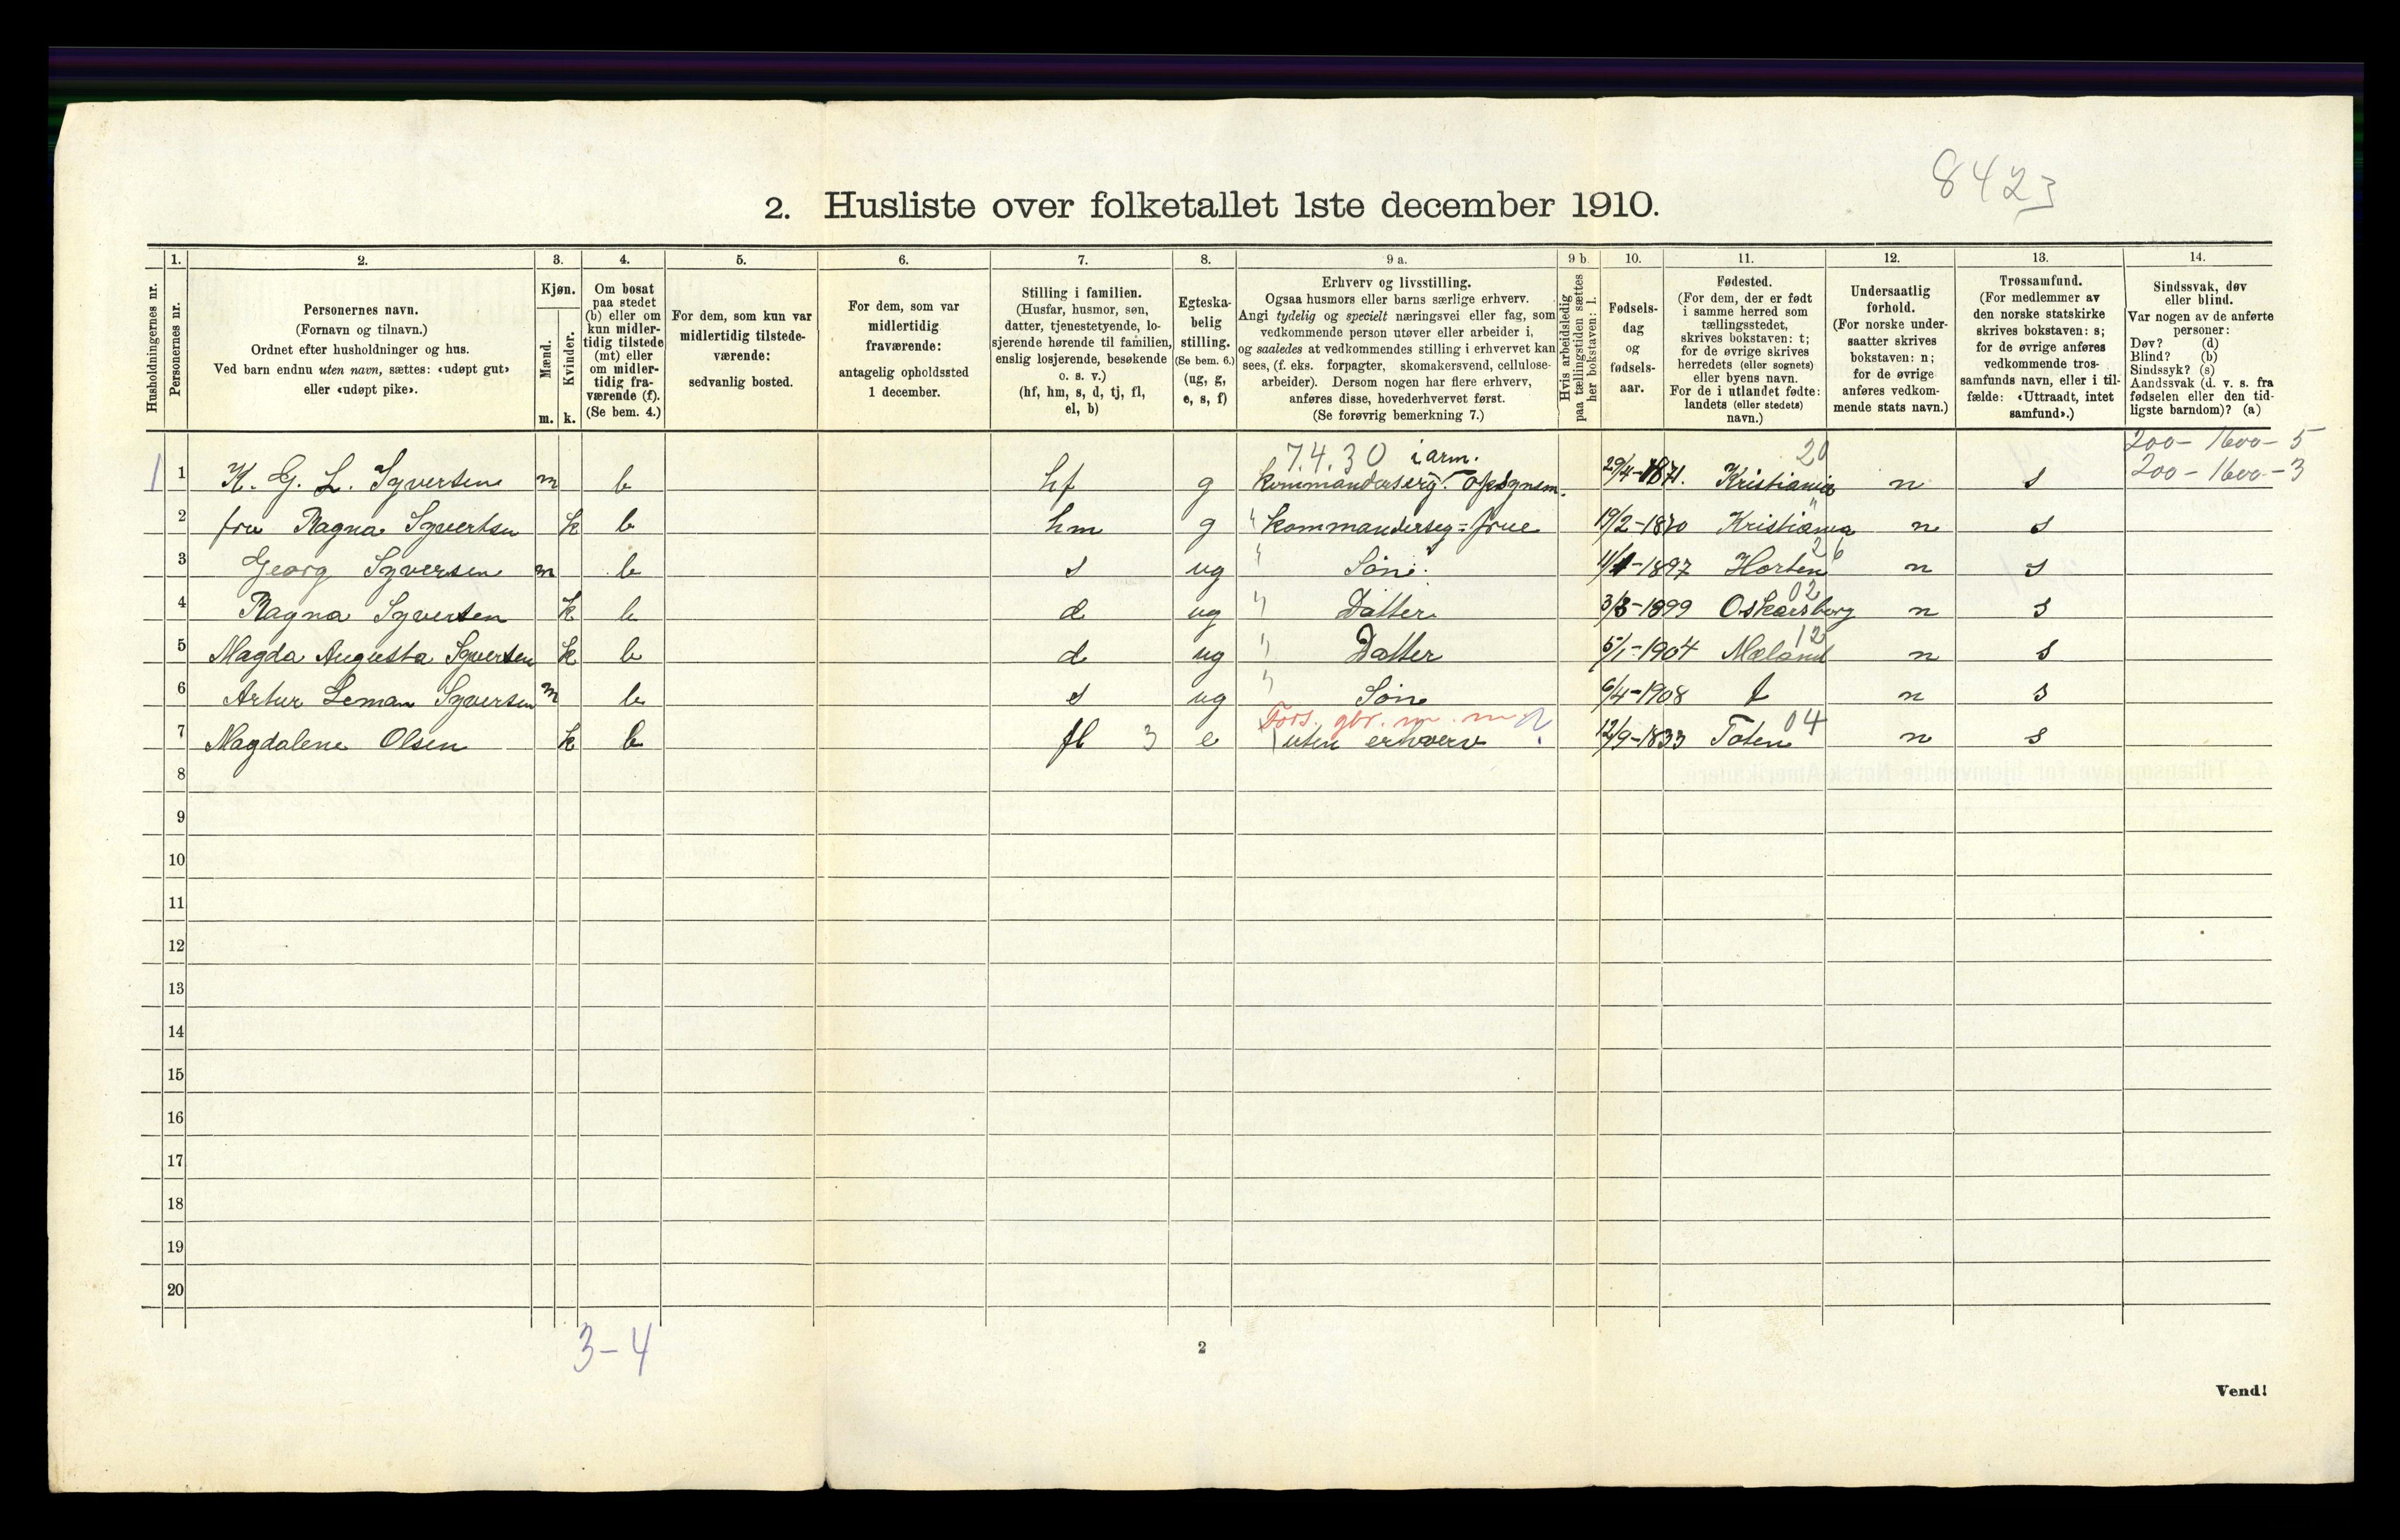 8423
2. Husliste over folketallet 1ste december 1910.
1. 2. 3. 4. 5. 6. 7. 8. 9 a. 9 b. 10. 11. 12. 13. 14.
Husholdningernes nr.
Personernes nr.
Personernes navn.
(Fornavn og tilnavn.)
Ordnet efter husholdninger og hus.
Ved barn endnu uten navn, sættes: «udøpt gut»
eller «udøpt pike».
Kjøn.
Mænd.
Kvinder.
m. k.
Om bosat
paa stedet
(b) eller om
kun midler-
tidig tilstede
(mt) eller
om midler-
tidig fra-
værende (f).
(Se bem. 4.)
For dem, som kun var
midlertidig tilstede-
værende:
sedvanlig bosted.
For dem, som var
midlertidig
fraværende:
antagelig opholdssted
1 december.
Stilling i familien.
(Husfar, husmor, søn,
datter, tjenestetyende, lo-
sjerende hørende til familien,
enslig losjerende, besøkende
o. s. v.)
(hf, hm, s, d, tj, fl,
el, b)
Egteska-
belig
stilling.
(Se bem. 6.)
(ug, g,
e, s, f)
Erhverv og livsstilling.
Ogsaa husmors eller barns særlige erhverv.
Angi tydelig og specielt næringsvei eller fag, som
vedkommende person utøver eller arbeider i,
og saaledes at vedkommendes stilling i erhvervet kan
sees, (f. eks. forpagter, skomakersvend, cellulose-
arbeider). Dersom nogen har flere erhverv,
anføres disse, hovederhvervet først.
(Se forøvrig bemerkning 7.)
Hvis arbeidsledig
paa tællingstiden sættes
her bokstaven: l.
Fødsels-
dag
og
fødsels-
aar.
Fødested.
(For dem, der er født
i samme herred som
tællingsstedet,
skrives bokstaven: t;
for de øvrige skrives
herredets (eller sognets)
eller byens navn.
For de i utlandet fødte:
landets (eller stedets)
navn.)
Undersaatlig
forhold.
(For norske under-
saatter skrives
bokstaven: n;
for de øvrige
anføres vedkom-
mende stats navn.)
Trossamfund.
(For medlemmer av
den norske statskirke
skrives bokstaven: s;
for de øvrige anføres
vedkommende tros-
samfunds navn, eller i til-
fælde: «Uttraadt, intet
samfund».)
Sindssvak, døv
eller blind.
Var nogen av de anførte
personer:
Døv? (d)
Blind? (b)
Sindssyk? (s)
Aandssvak (d. v. s. fra
fødselen eller den tid-
ligste barndom)? (a)
7.4.30 i arm. 20 200 - 1600 - 5
1 1 K. G. L. Syversen m b hf g kommanderserg. Opsynsm. 29/4-1871. Kristiania n s 200 - 1600 - 3
2 fru Ragna Syvertsen k b hm g " kommanderserg=frue 19/2-1870 Kristiania " n s
3 Georg Syversen m b s ug " Søn 11/1-1897 Horten n s
02
4 Ragna Syversen k b d ug " Datter 3/3-1899 Oskarsborg n s
12
5 Magda Augusta Syversen k b d ug " Datter 5/1-1904 Mæland n s
6 Artur Leman Syversen m b s ug " Søn 6/4-1908 t n s
Fors. gbr. m. m 04
7 Magdalene Olsen k b fl 3 e uten erhverv 12/9-1833 Toten n s
8
9
10
11
12
13
14
15
16
17
18
19
20
3-4
2
Vend!